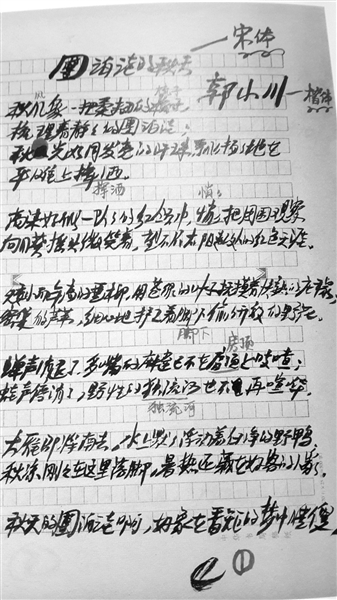 團泊洼的秋天 —宋体
郭小川—楷体
秋风象一把柔韧的梳子
梳理着静静的團泊洼;
秋光如同发亮的汗珠,飘飘扬扬地在
平滩上挥洒。
挥洒 悄悄
高粱好似一队队的红领巾,悄悄把周围观察
向日葵摇头微笑着,望不尽太阳起处的红色天涯。
矮小而年高的垂柳,用苍绿的叶子抚摸着快熟的庄稼;
密集的芦苇,细心地护卫着脚下偷偷开放的野花。
脚下 房顶
蝉声消退了,多嘴的麻雀已不在房顶上吱喳;
蛙声停息了,野性的独流河也不再喧哗。
独流河
大雁即将南去,水上默默浮动着白净的野鸭;
秋凉刚刚在这里落脚,暑热还藏在好客的人家。
秋天的團泊洼啊,好象在香甜的梦中睡傻
①